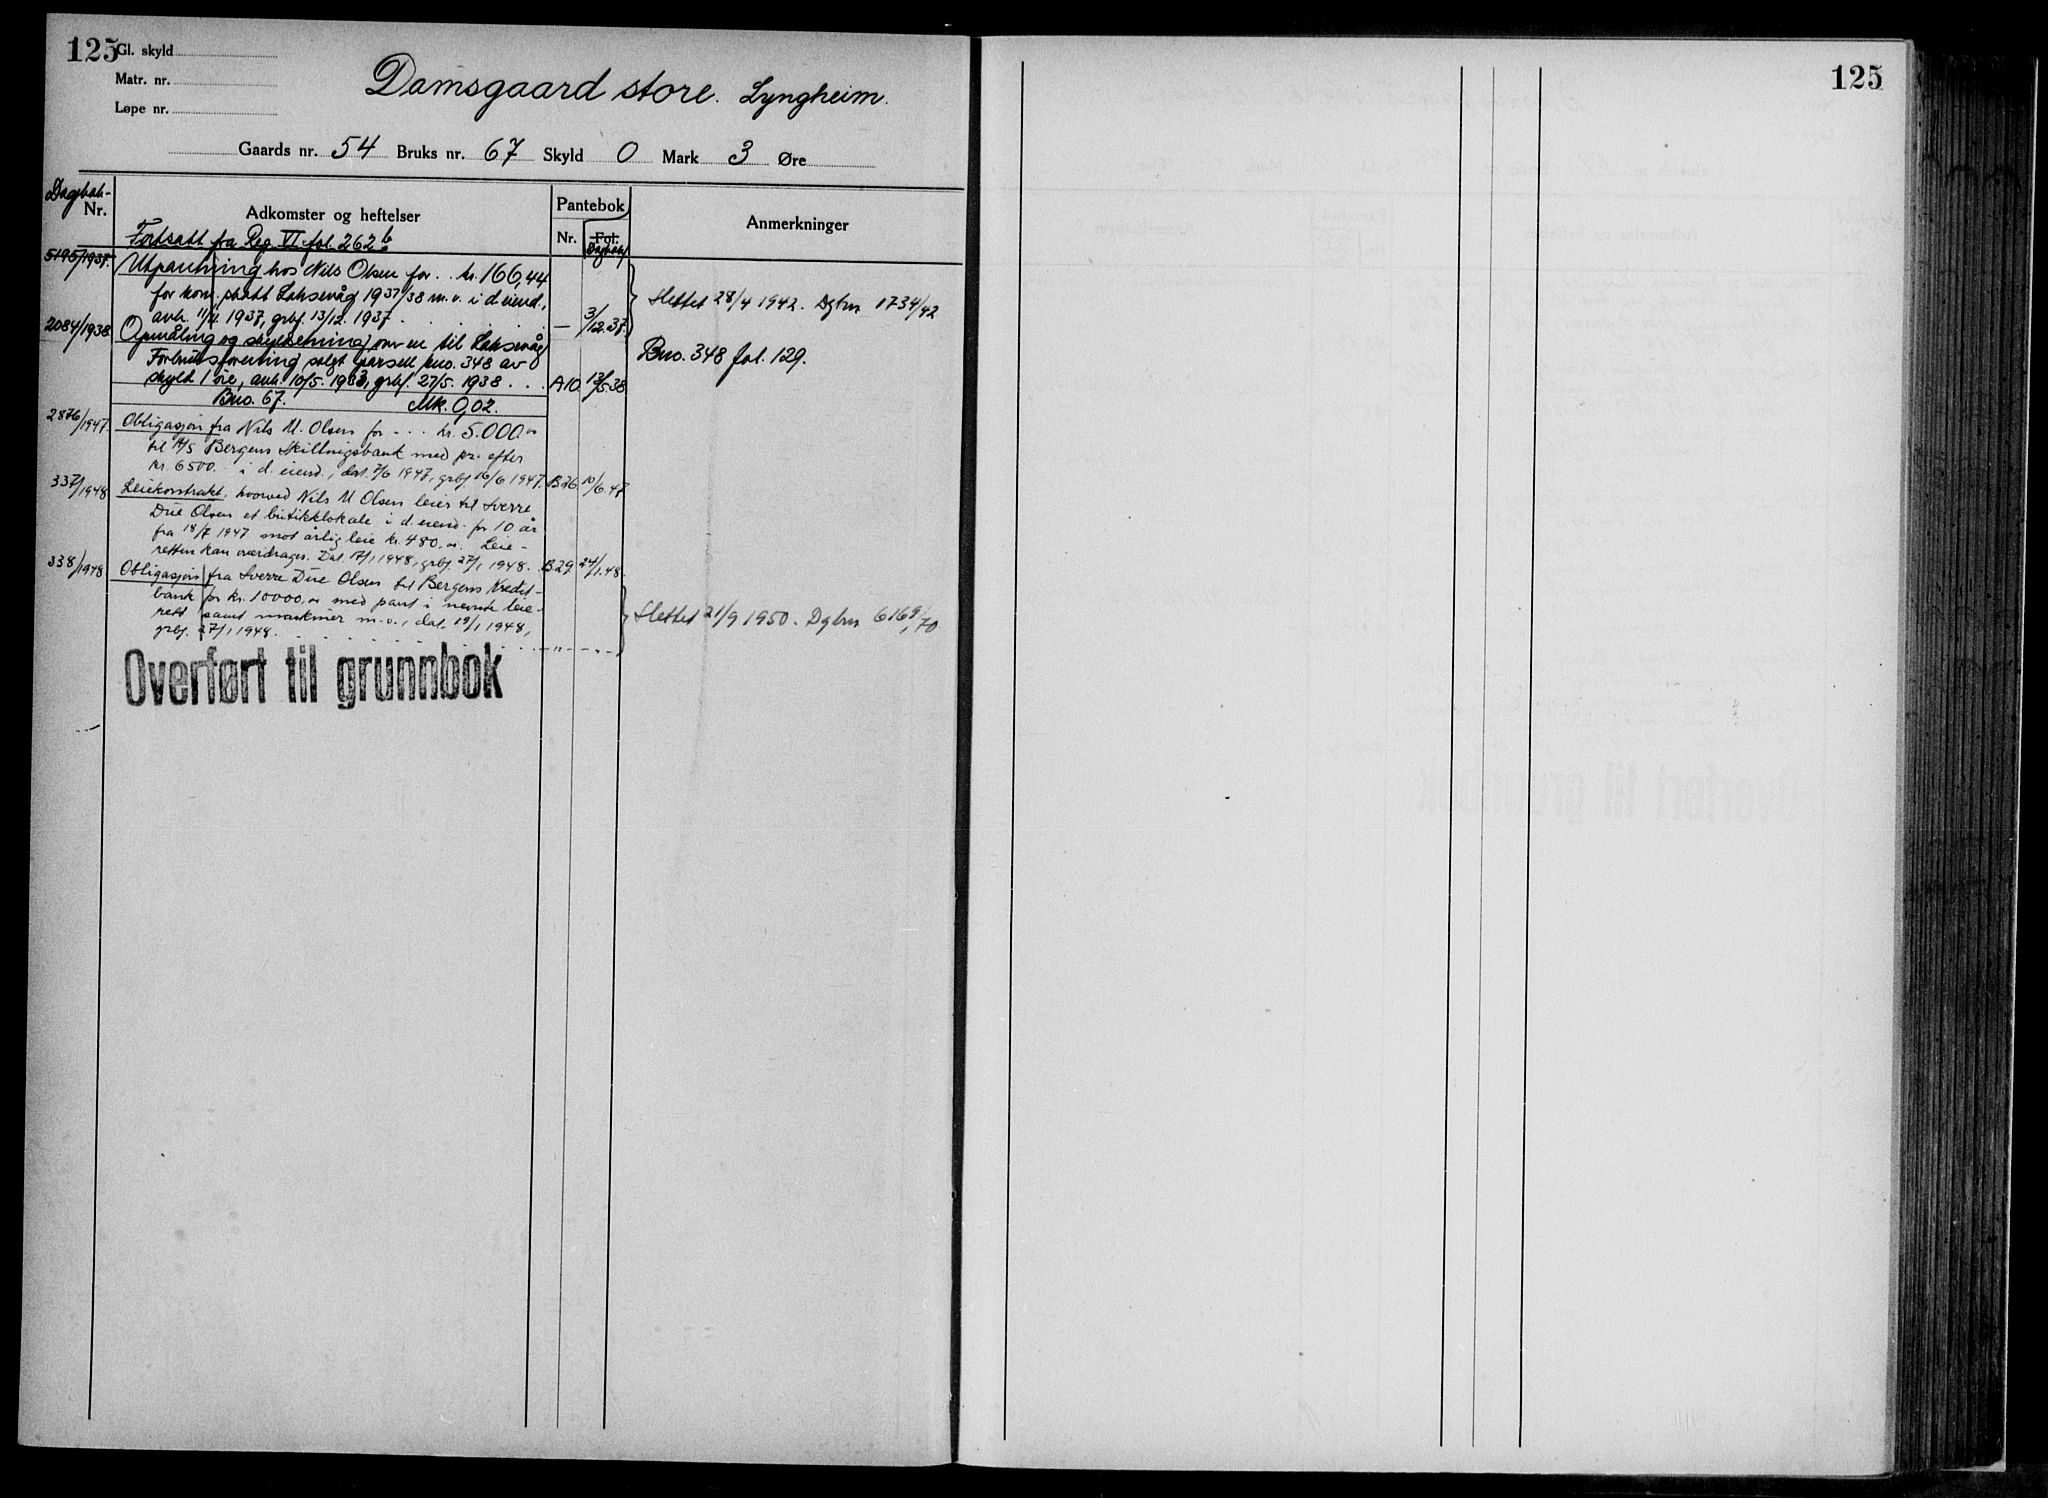 125
Gl. skyld
Matr. nr.
Løpe nr.
Damsgaard store. Lyngheim.
Gaards nr. 54 Bruks nr. 67 Skyld 0 Mark 3 Øre
Dagbok-
Nr.
Adkomster og heftelser
Pantebok
Nr.
Fol.
Dagbokf
Anmerkninger
Fortsatt fra Reg. VI fol. 262 b
5195/1937.
Utpantning hos Nils Olsen for .. kr. 166,44
for kom. skatt Laksevåg 1937/38 m.v. i d. eiend.,
avh. 1937, grbf. 13/12. 1937
— 3/12.37.
Slettet 28/4 1942. Dgbnr 1734/42
2084/1938
Opmåling og skyldsetning over en til Laksevåg
Forbruksforening solgt parsell bno. 348 av
skyld 1 øre, avh. 10/5. 1933, grbf. 27/5. 1938 . . .
A10. 38
Bno. 348 fol. 129.
Bno. 67. Mk. 0,02.
2876/1947.
Obligasjon fra Nils U. Olsen for - . . kr. 5.000.-
til A/S Bergens Skillingsbank med pr. efter
kr. 6500.- i d. eiend., dat. 7/6 1947, grbf. 16/6 1947.
B26 10/6.47
337/1948
Leiekontrakt, hvorved Nils U Olsen leier til Sverre
Due Olsen et butikklokale i d. eiend. for 10 år
fra 18/7 1947 mot årlig leie kr. 480.-. Leie-
retten kan overdrages. Dat. 17/1 1948, grbf. 27/1 1948.
B29 24/1.48.
338/1948
Obligasjon fra Sverre Due Olsen til Bergens Kredit-
bank for kr. 10000,- med pant i nevnte leie-
rett samt maskiner m.v., dat. 19/1 1948,
grbf. 27/1 1948.
- " -
Slettet 21/9 1950. Dgbnr 6169/70
Overført til grunnbok
125